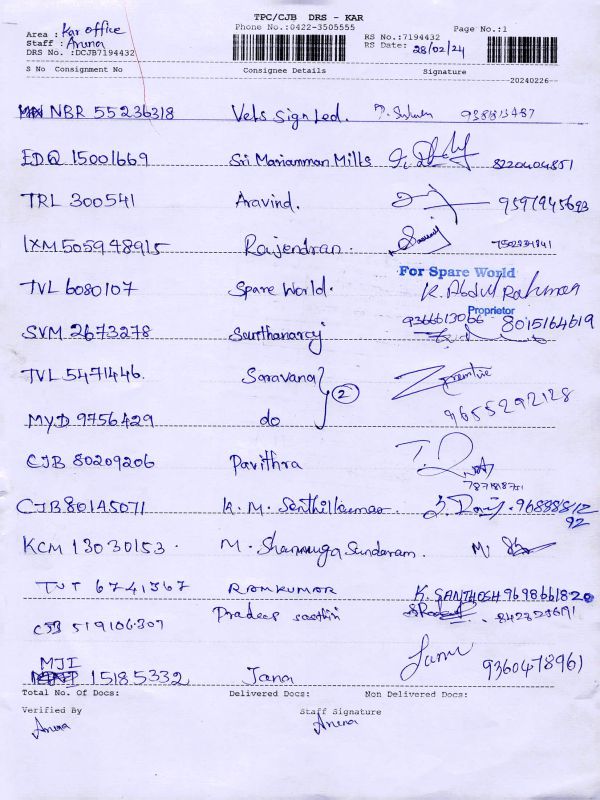 TPC/CJB DRS - KAR
Phone No.:0422-3505555
Page No.:1
Area : Kar office
Staff : Aruna
DRS No. :DCJB7194432
RS No.:7194432
RS Date: 28/02/24
S No Consignment No Consignee Details Signature
20240226
NBR 55236318 Vels Sign Led. 938813487
EDQ 15001669 Sri Mariamman Mills 8220404851
TRL 300541 Aravind. 9597945693
IXM 505948915 Rajendran. 7502334841
For Spare World
TVL 6080107 Spare World. K. Abdul Rahman
Proprietor
SVM 2673278 9366613066 8015164619
TVL 5471446. Saravana
2
MYD 9756429 do 9655292128
CJB 80209206 Pavithra
CJB80145071 K. M. Senthilkumar.
92
KCM 13030153. M. Shanmuga Sundaram. M.
TUT 6741567 RAMKUMAR K. SANTHOSH 9698661820
CJB 519106307 Pradeep
MJI
15185332 Jana 9360478961
Total No. Of Docs: Delivered Docs: Non Delivered Docs:
Verified By Staff Signature
Aruna Aruna